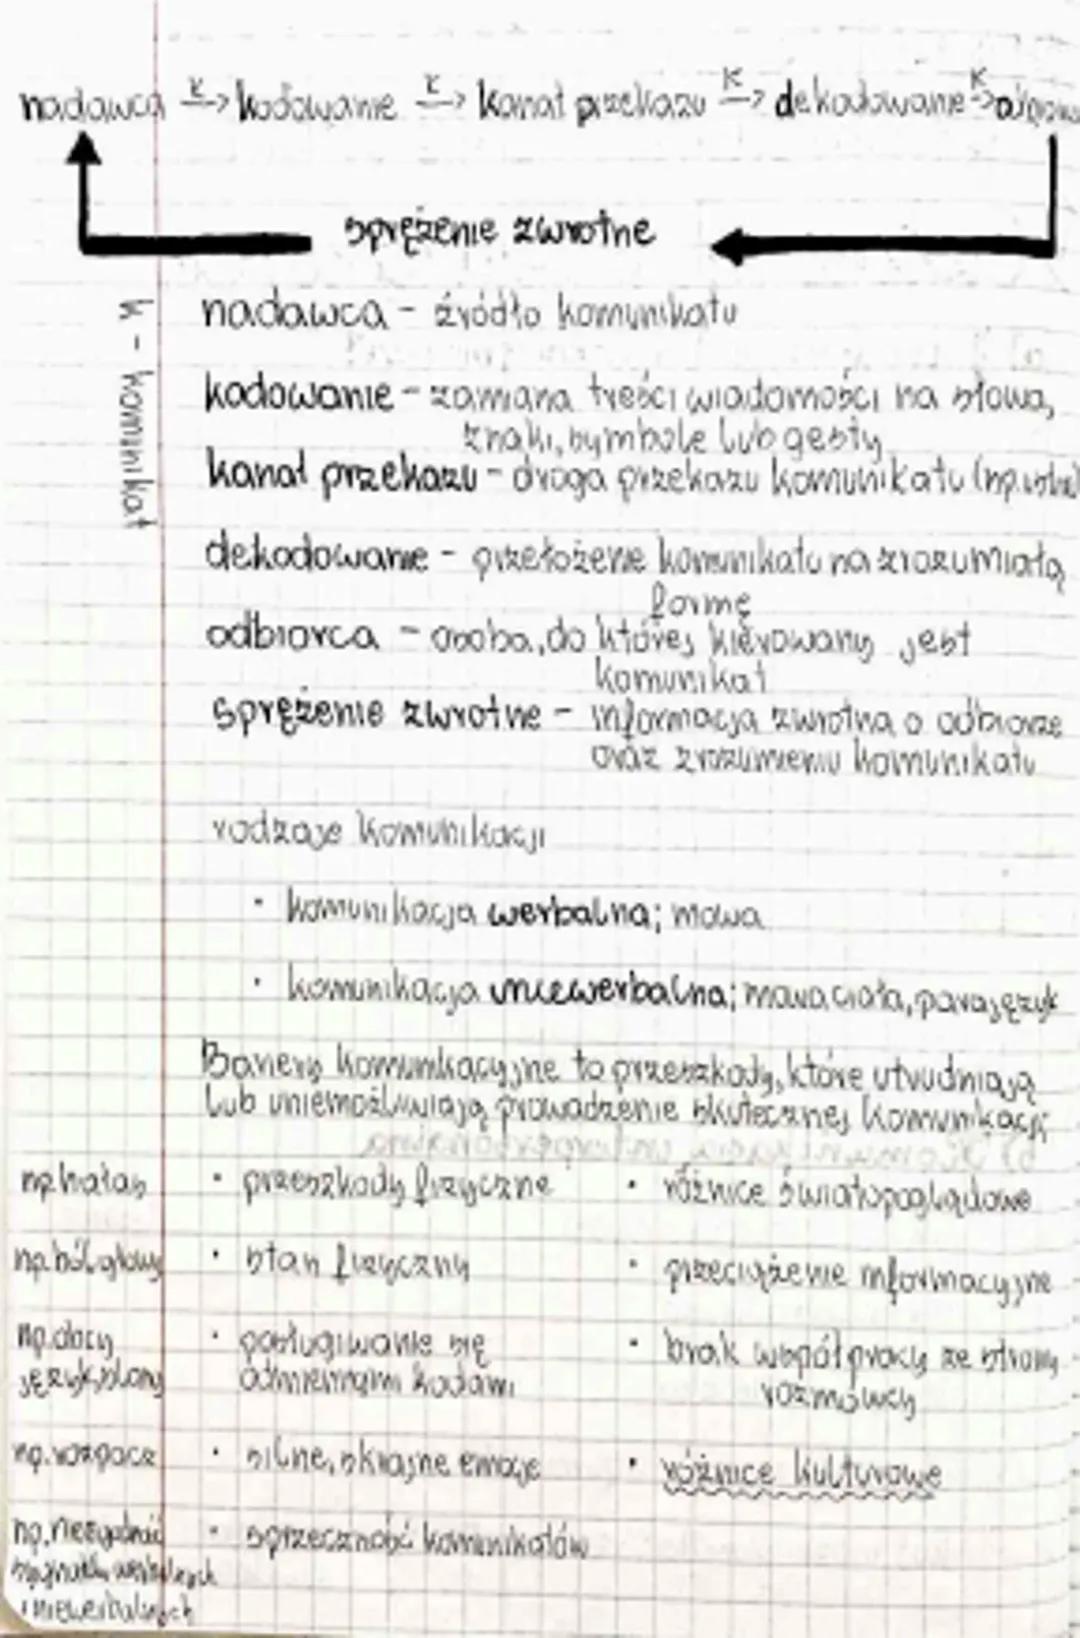 nadawca K→ kodowanie K→ kanał przekazu K→ dekodowanie K→
sprężenie zwrotne
K - komunikat
nadawca - źródło komunikatu
kodowanie - zamiana treści wiadomości na słowa,
znaki, symbole lub gesty
kanał przekazu - droga przekazu komunikatu (np.
dekodowanie - przełożenie komunikatu na zrozumiałą
formę
odbiorca - osoba, do której kierowany jest
komunikat
sprężenie zwrotne - informacja zwrotna o odbiorze
oraz zrozumieniu komunikatu
rodzaje komunikacji
• komunikacja werbalna; mowa
• komunikacja niewerbalna; mowa ciała, parajęzyk
Bariery komunikacyjne to przeszkody, które utrudniają
lub uniemożliwiają prowadzenie skutecznej komunikacji
np. hałas • przeszkody fizyczne • różnice światopoglądowe
np. ból głowy • stan fizyczny • przeciążenie informacyjne
np. obcy • posługiwanie się • brak współpracy ze strony
język, slang odmiennymi kodami rozmówcy
np. rozpacz • silne, skrajne emocje • różnice kulturowe
np. niezgodność • sprzeczność komunikatów
werbalnych
i niewerbalnych